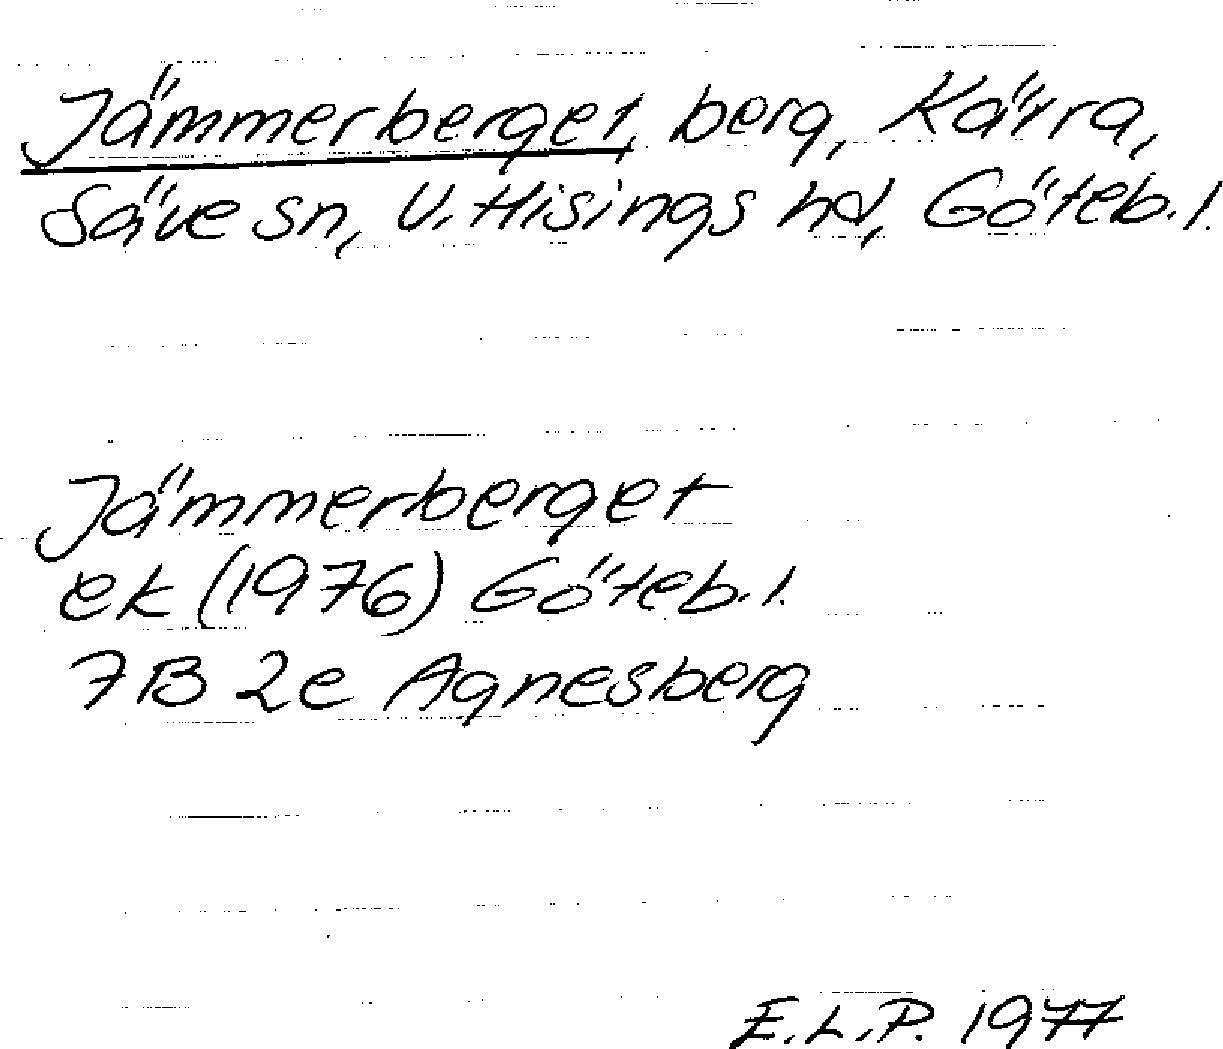 Jämmerberget, berg, Kärra,
Säve sn, V. Hisings hd, Göteb. l.
Jämmerberget
ek (1976) Göteb. l.
7B 2e Agnesberg
E.L.P. 1977